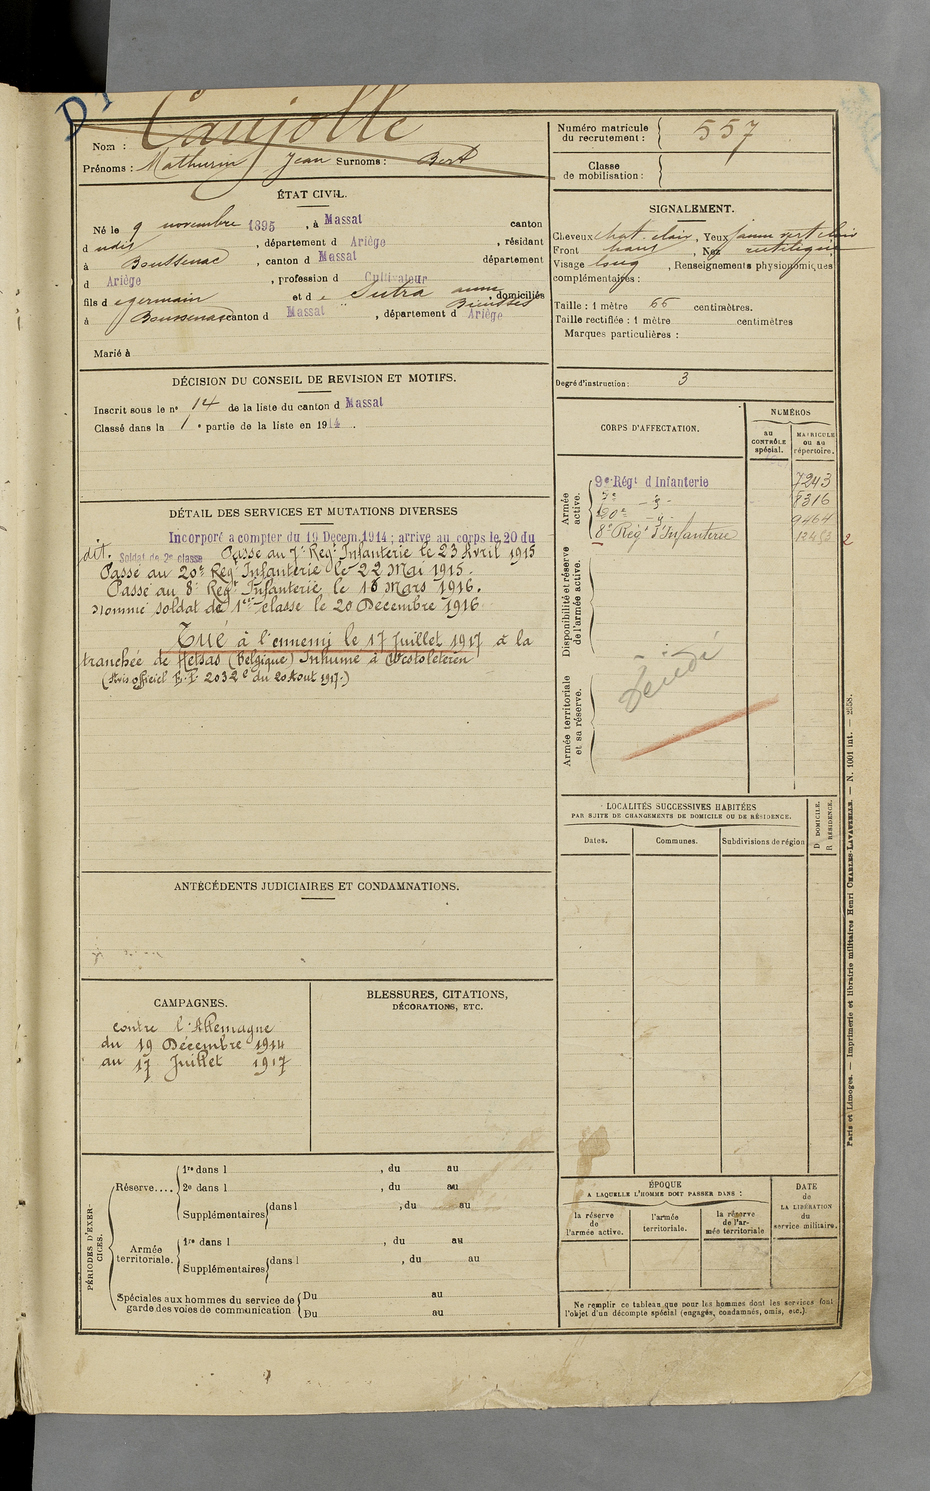 Caujolle
Nom :
Prénoms : Mathurin Jean Surnoms : Bert
Numéro matricule
du recrutement : 557
Classe
de mobilisation :
ÉTAT CIVIL.
Né le 9 novembre 1895, à Massat canton
d udit, département d Ariège, résidant
à Boussenac, canton d Massat département
d Ariège, profession d Cultivateur
fils d e germain et d e Sutra anne, domiciliés
à Boussenac canton d Massat, département d Ariège
Marié à
SIGNALEMENT.
Cheveux chat. clair, Yeux jaune vert clair
Front haut, Nez rectiligne
Visage long, Renseignements physionomiques
complémentaires :
Taille : 1 mètre 66 centimètres.
Taille rectifiée : 1 mètre centimètres
Marques particulières :
Degré d'instruction : 3
DÉCISION DU CONSEIL DE REVISION ET MOTIFS.
Inscrit sous le n° 14 de la liste du canton d Massat
Classé dans la 1e partie de la liste en 1914.
CORPS D'AFFECTATION.
NUMÉROS
au
CONTRÔLE
spécial.
MATRICULE
ou au
répertoire.
Armée
active.
9e Régt d'Infanterie 7243
7e _ d° _ 8316
20e _ d° _ 9464
8e Régt d'Infanterie
Disponibilité et réserve
de l'armée active.
Armée territoriale
et sa réserve.
DÉTAIL DES SERVICES ET MUTATIONS DIVERSES
Incorporé a compter du 19 Decem. 1914 ; arrivé au corps le 20 du
dit. Soldat de 2e classe Passé au 7e Régt Infanterie le 23 Avril 1915
Passé au 20e Régt Infanterie le 22 Mai 1915.
Passé au 8e Régt Infanterie le 18 Mars 1916.
Nommé soldat de 1ere classe le 20 Décembre 1916
Tué à l'ennemi le 17 Juillet 1917 à la
tranchée de Hetsas (Belgique) Inhumé à Westoleteren
(Avis officiel B.I. 2032e du 20 Aout 1917.)
LOCALITÉS SUCCESSIVES HABITÉES
PAR SUITE DE CHANGEMENTS DE DOMICILE OU DE RÉSIDENCE.
Dates. Communes. Subdivisions de région
D. DOMICILE.
R. RÉSIDENCE.
ANTÉCÉDENTS JUDICIAIRES ET CONDAMNATIONS.
CAMPAGNES.
contre l'Allemagne
du 19 Décembre 1914
au 17 Juillet 1917
BLESSURES, CITATIONS,
DÉCORATIONS, ETC.
PÉRIODES D'EXER-
CICES.
Réserve....
1re dans l , du au
2e dans l , du au
Supplémentaires dans l , du au
Armée
territoriale.
1re dans l , du au
Supplémentaires dans l , du au
Spéciales aux hommes du service de
garde des voies de communication
Du au
Du au
ÉPOQUE
A LAQUELLE L'HOMME DOIT PASSER DANS :
la réserve
de
l'armée active.
l'armée
territoriale.
la réserve
de l'ar-
mée territoriale
DATE
de
LA LIBÉRATION
du
service militaire.
Ne remplir ce tableau que pour les hommes dont les services font
l'objet d'un décompte spécial (engagés, condamnés, omis, etc.).
Paris et Limoges. — Imprimerie et librairie militaires Henri CHARLES-LAVAUZELLE. — N. 1001 int. — 2558.